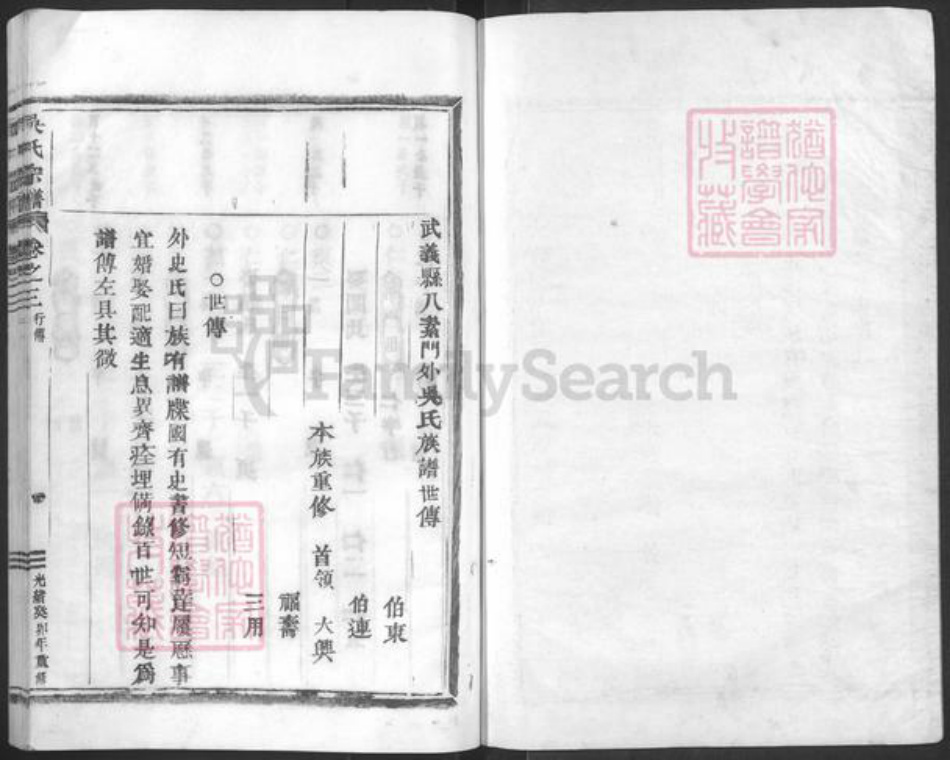 武義縣八素門外吳氏族譜世傳
伯東
伯連
本族重修 首領 大興
福壽
三用
○世傳
外史氏曰族有譜牒國有史書修短窮達履歷事
宜婚娶配適生息異齊瘞埋備錄百世可知是爲
譜傳左具其微
吳氏宗譜 卷之三 行傳
光緒癸卯年重修
猶他家譜學會收藏
猶他家譜學會收藏
FamilySearch